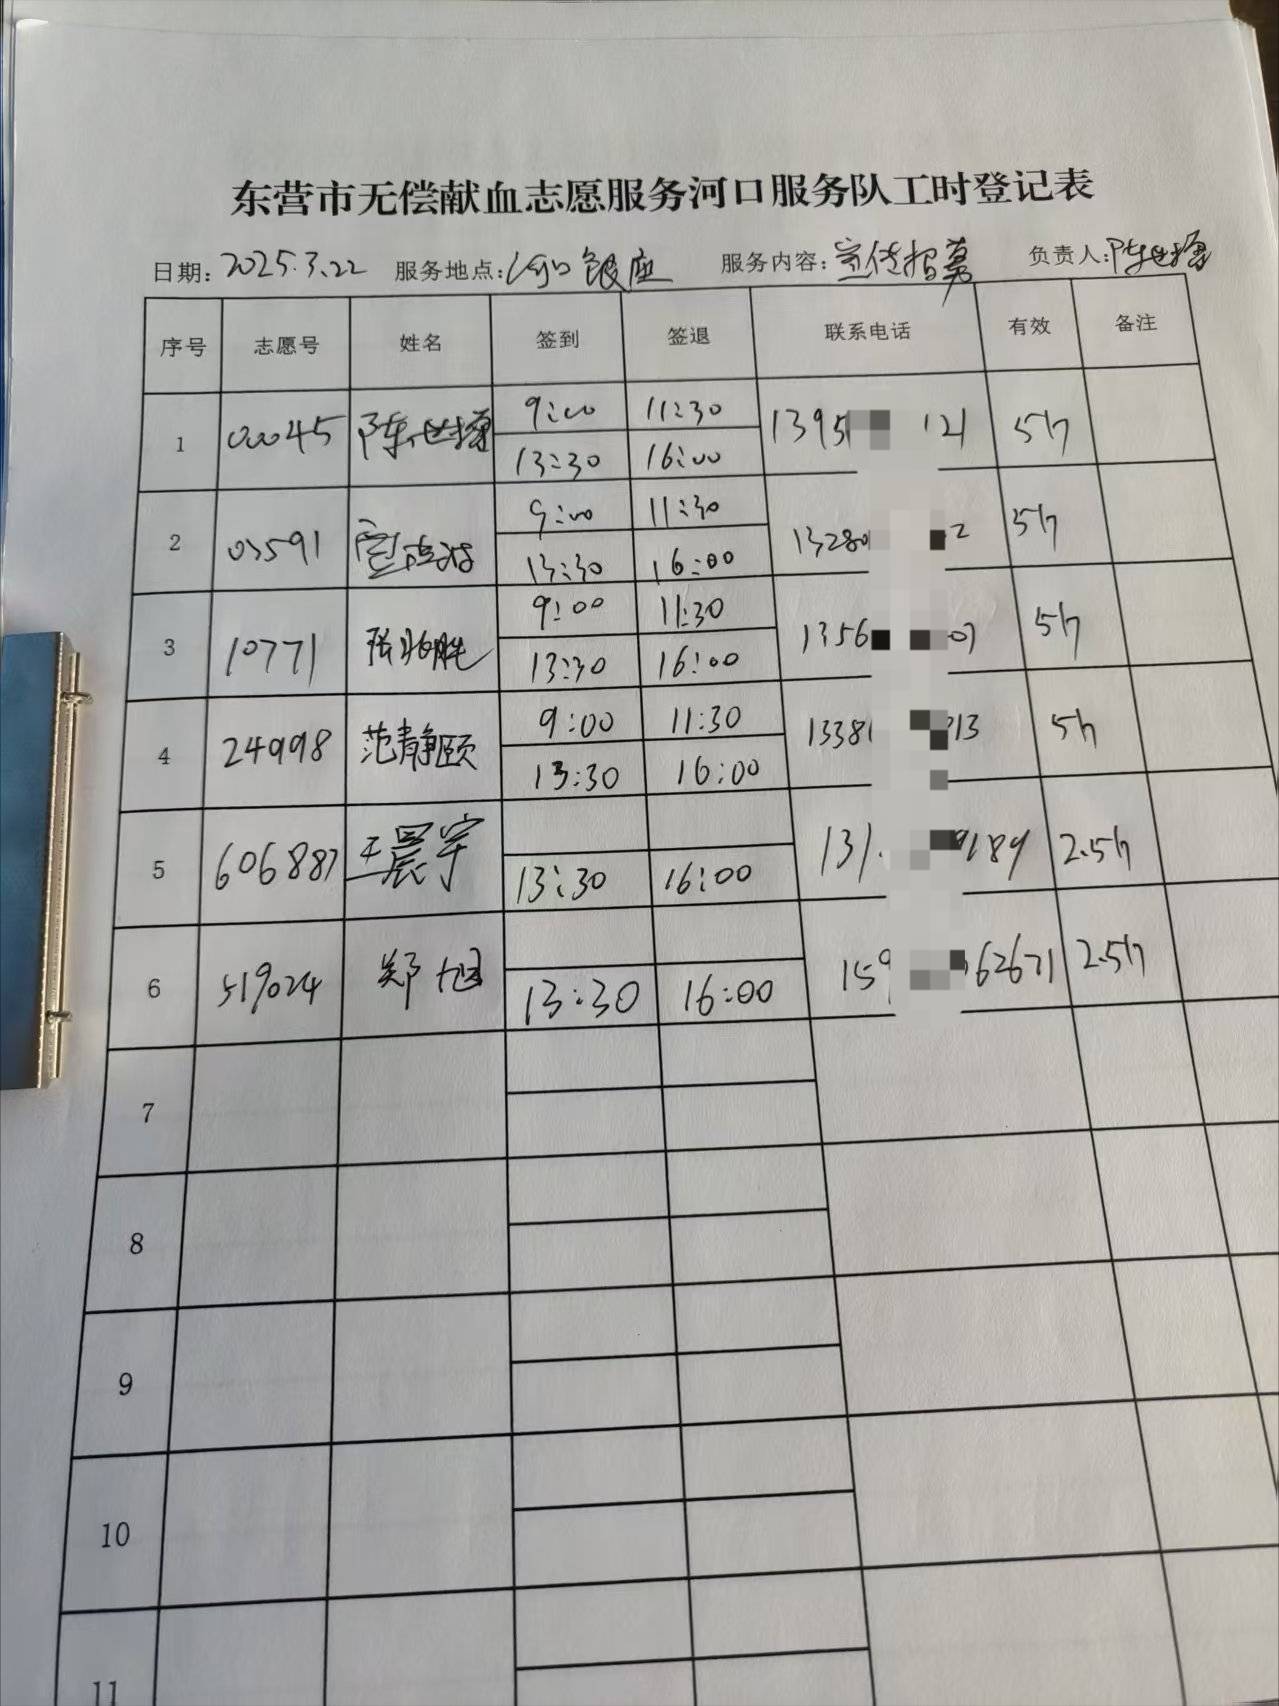 东营市无偿献血志愿服务河口服务队工时登记表
日期: 2025.3.22 服务地点: 河口银座 服务内容: 宣传招募 负责人: 陈世
序号 志愿号 姓名 签到 签退 联系电话 有效 备注
1 00045 陈世 9:00 11:30 1395 121 5h
13:30 16:00
2 03591 9:00 11:30 13280 2 5h
13:30 16:00
3 10771 张 胜 9:00 11:30 1356 07 5h
13:30 16:00
4 24998 范静颐 9:00 11:30 1338 313 5h
13:30 16:00
5 606887 王晨宇 13:30 16:00 131 9189 2.5h
6 519024 郑旭 13:30 16:00 159 62671 2.5h
7
8
9
10
11